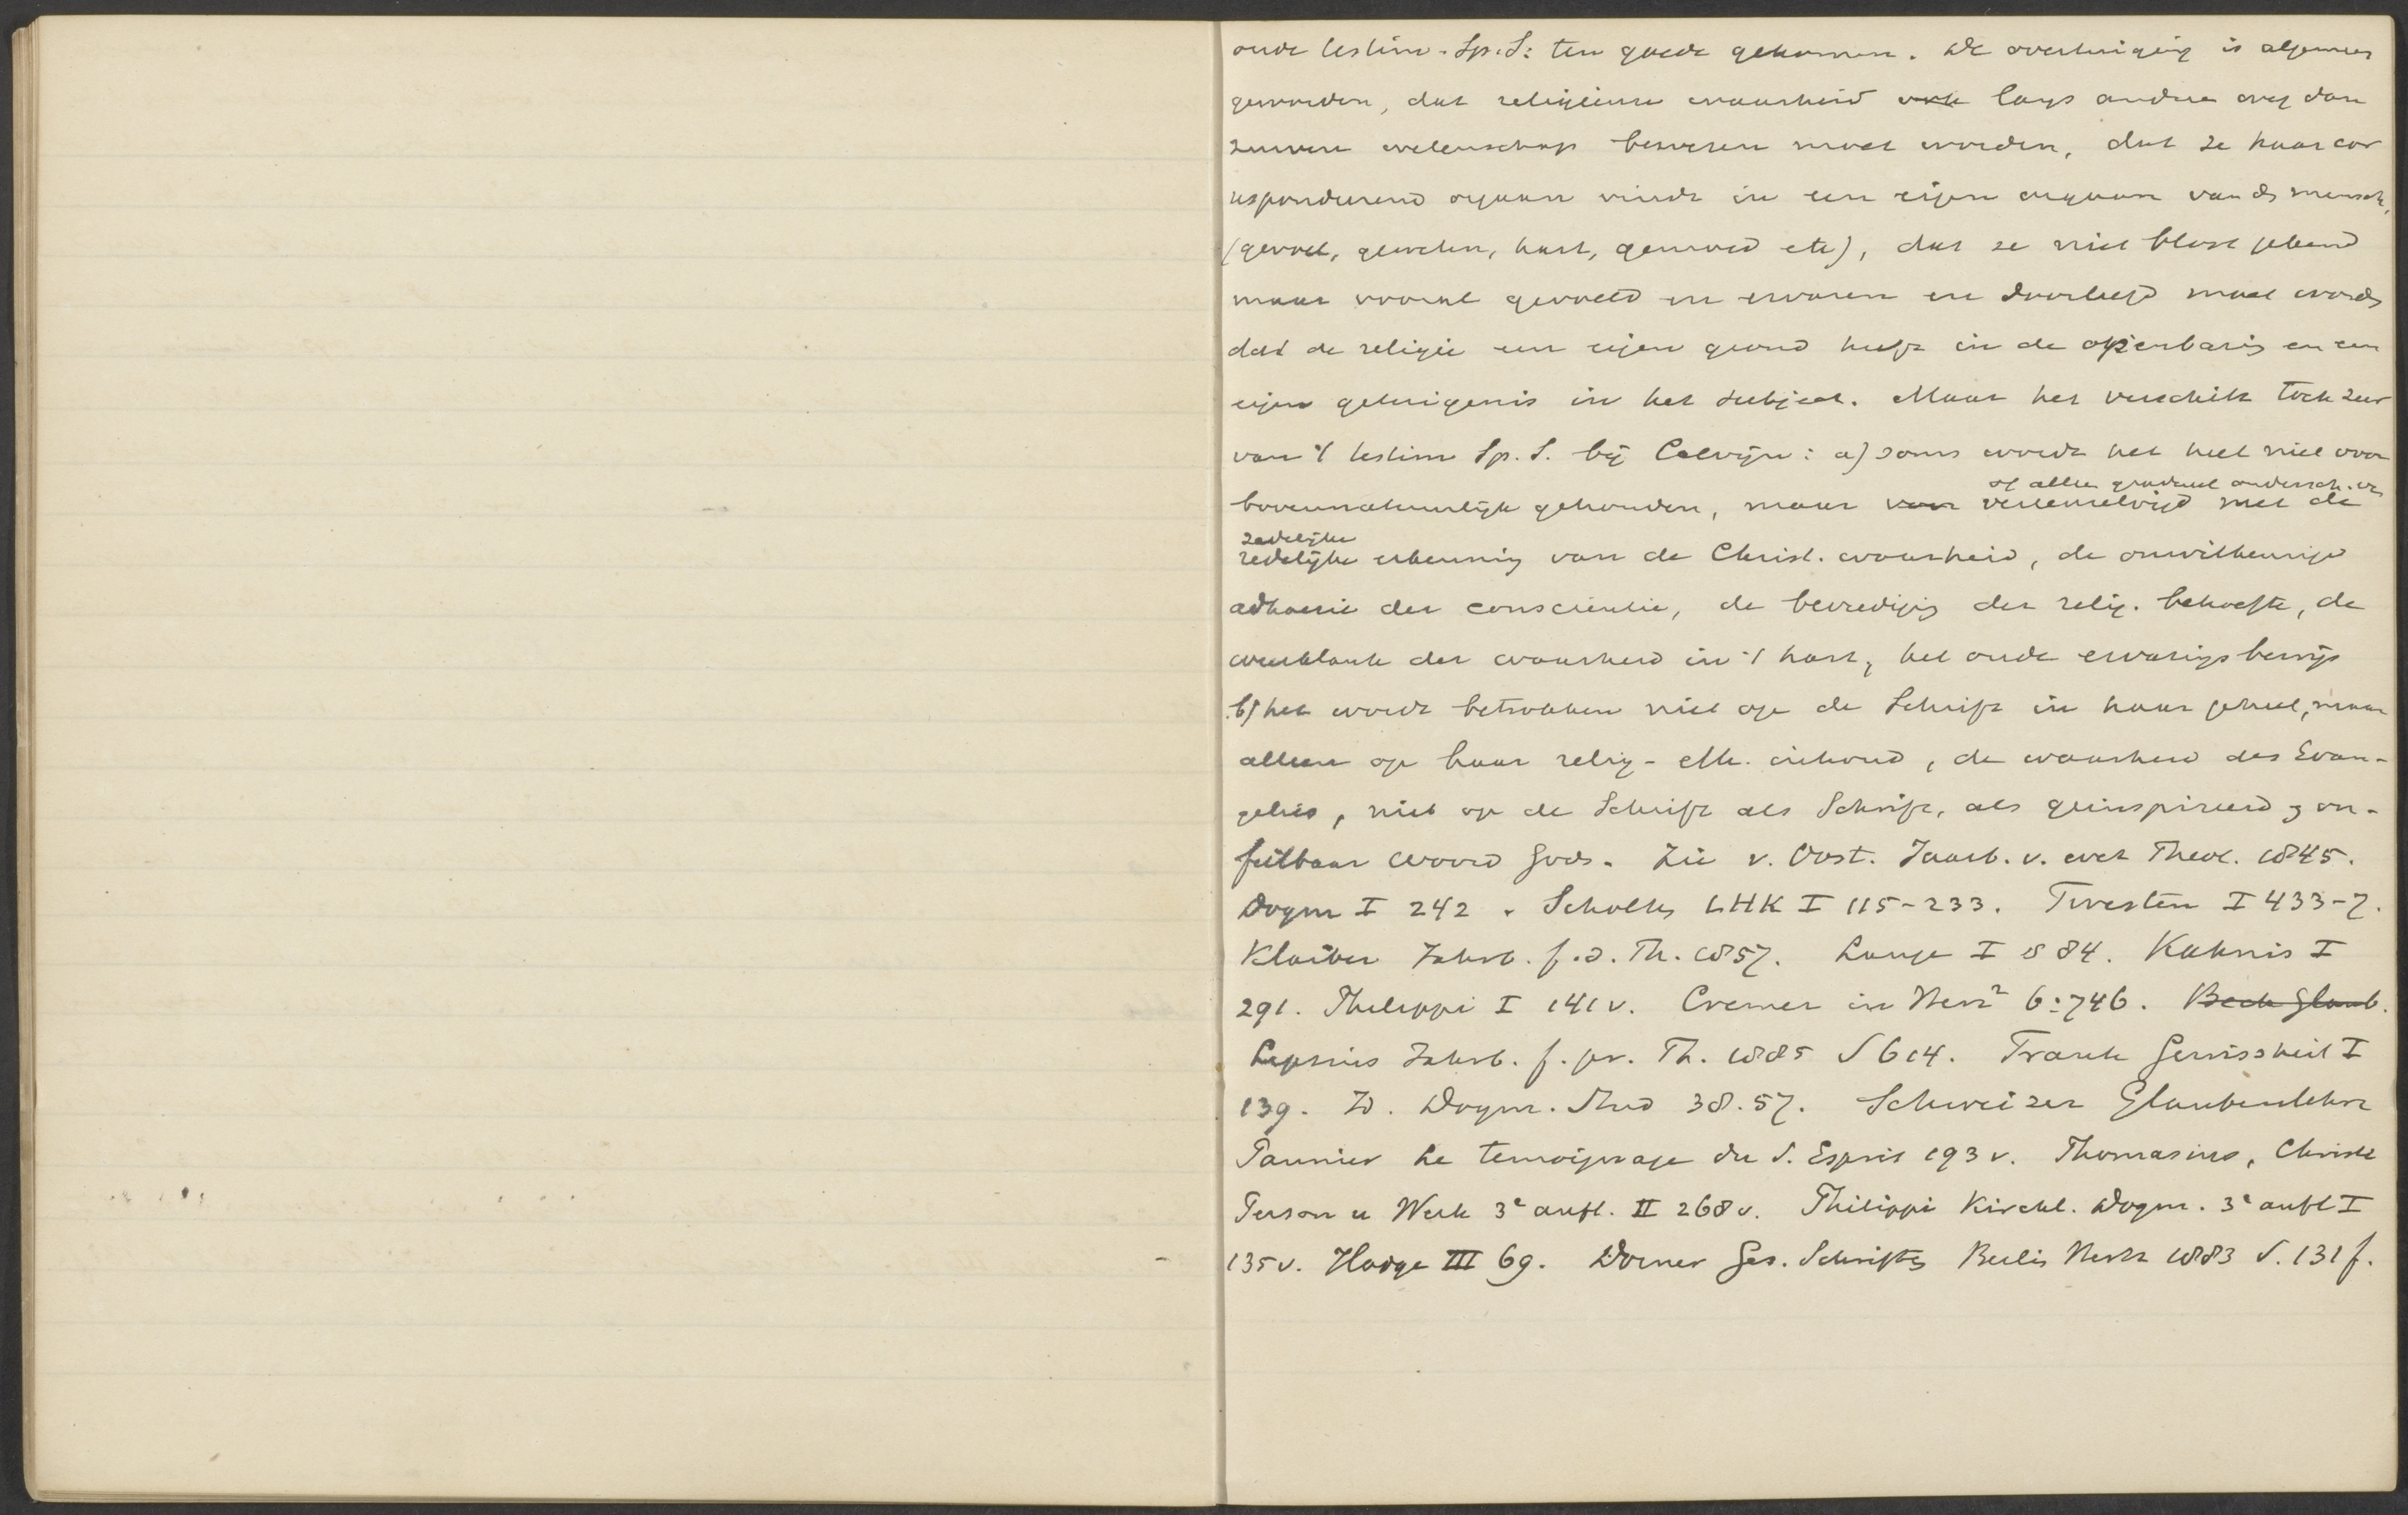 oude testim. Sp. S: ten goede gekomen. De overtuiging is algemeen
geworden, dat religieuse waarheid ook langs andere weg dan
zuivere wetenschap bewezen moet worden, dat ze haar cor
respondeerend orgaan vindt in een eigen orgaan van ds mensch,
(gevoel, geweten, hart, gemoed etc), dat ze niet bloot gekend
maar vooral gevoeld en ervaren en doorleefd moet words
dat de religie een eigen grond heeft in de openbaring en een
eigen getuigenis in het subject. Maar het verschilt toch zeer
van 't testim Sp. S. bij Calvijn: a) soms wordt het heel niet voor
of alleen gradueel ondersch.
bovennatuurlijk gehouden, maar vereenzelvigd met de
zedelijke
redelijke erkenning van de Christ. waarheid, de onwillekeurige
adhaesie der conscientie, de bevrediging der relig. behoefte, de
weerklank der waarheid in 't hart, het oude ervaringsbewijs
b) het wordt betrokken niet op de Schrift in haar geheel, maar
alleen op haar relig-eth. inhoud, de waarheid des Evan-
gelies, niet op de Schrift als Schrift, als geinspireerd, on-
feilbaar woord Gods. Zie v. Oost. Jaarb. v. wet Theol. 1845.
Dogm I 242. Scholten LHK I 115-233. Twesten I 433-7.
Klaiber Jahrb. f. d. Th. 1857. Lange I 584. Kahnis I
291. Philippi I 141 v. Cremer in Herz² 6:746. Beck Glaub.
Lipsius Jahrb. f. pr. Th. 1885 S 614. Frank Gewissheit I
139. Id. Dogm. Stud 38.57. Schweizer Glaubenslehre
Pannier Le temoignage du S. Esprit 193 v. Thomasius, Christi
Person u Werk 3e aufl. II 268 v. Philippi Kirchl. Dogm. 3e aufl I
135 v. Hodge III 69. Dorner Ges. Schriften Berlin Hertz 1883 S. 131 f.